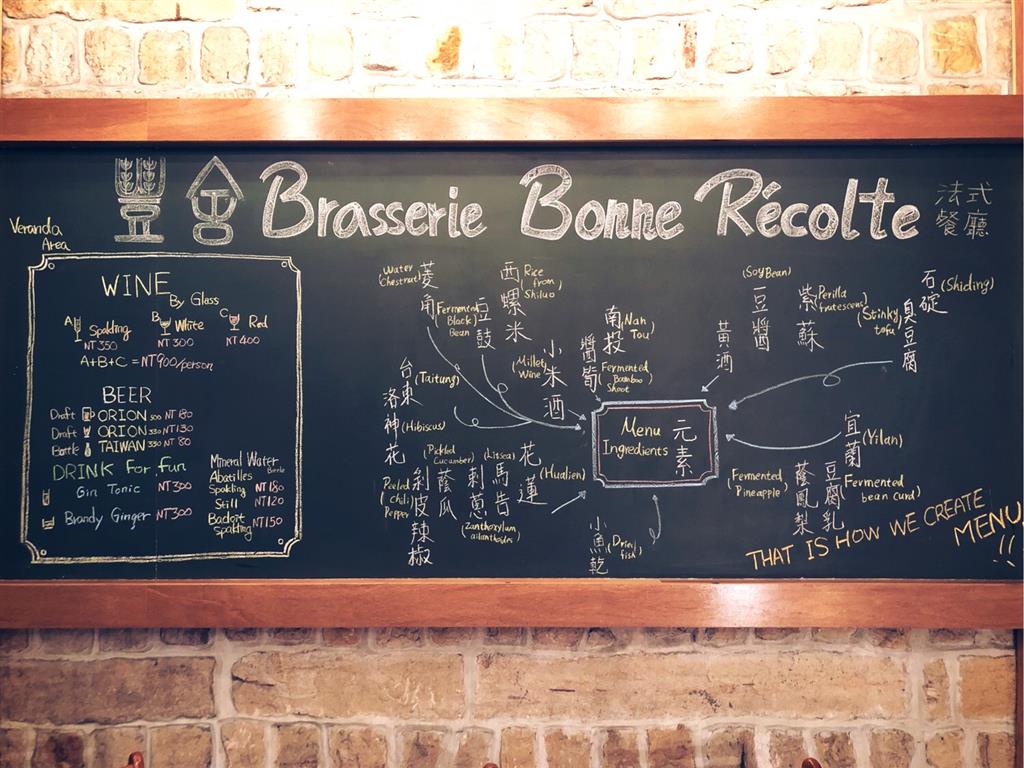 Brasserie Bonne Récolte
法式
餐廳
Veranda
Area
WINE
By Glass
A Spalding
NT 350
B White
NT 300
C Red
NT 400
A+B+C = NT900/person
BEER
Draft ORION 500 NT 180
Draft ORION 330 NT 130
Bottle TAIWAN 330 NT 80
DRINK For fun
Gin Tonic NT300
Brandy Ginger NT300
Mineral Water
Bottle
Abatilles
Spakling NT180
Still NT120
Badoit NT150
spakling
(Water
Chestnut)
菱角
(Fermented
Black
Bean)
豆鼓
西螺米
(Rice
from
Shiluo)
(Millet
Wine)
小米酒
南投
(Nan
Tou)
醬筍
(Fermented
Bamboo
Shoot)
台東
(Taitung)
洛神花
(Hibiscus)
(Peeled
Chili
Pepper)
剝皮辣椒
(Pickled
Cucumber)
蔭瓜
刺蔥
(Zanthoxylum
ailanthoides)
(Litsea)
馬告
花蓮
(Hualien)
Menu
Ingredients
元素
小魚乾
(Dried
fish)
(Soy Bean)
豆醬
黃酒
紫蘇
(Perilla
frutescens)
(Stinky
tofu)
臭豆腐
石碇
(Shiding)
宜蘭
(Yilan)
(Fermented
Pineapple)
蔭鳳梨
豆腐乳
(Fermented
bean curd)
THAT IS HOW WE CREATE
MENU!!